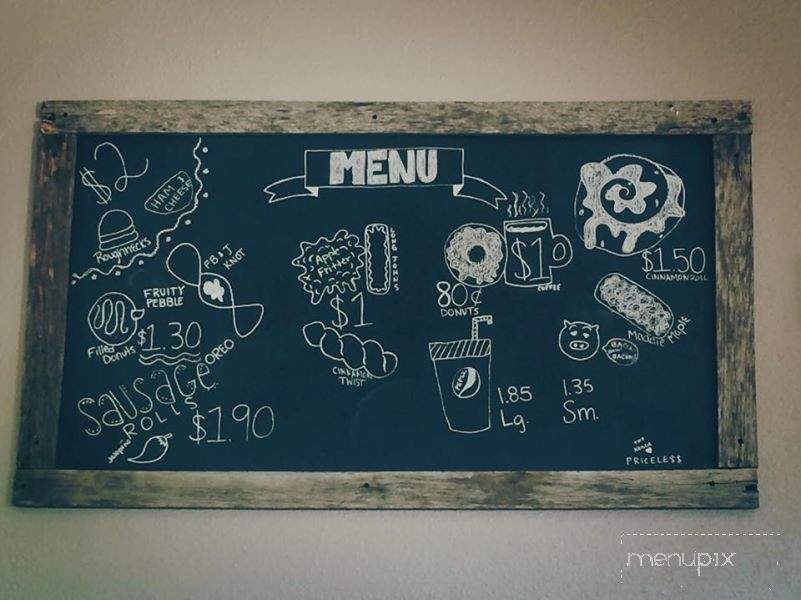 MENU
$2
HAM &
CHEESE
Roughnecks
PB & J
KNOT
FRUITY
PEBBLE
Filled
Donuts
$1.30
OREO
SAUSAGE
ROLLS
$1.90
Jalapeño
Apple
Fritter
LONG JOHNS
$1
CINNAMON
TWIST
80¢
DONUTS
$1
COFFEE
PEPSI
1.85
Lg.
1.35
Sm.
$1.50
CINNAMON ROLL
MAPLE
BACON
THE
PRICELESS
menupix